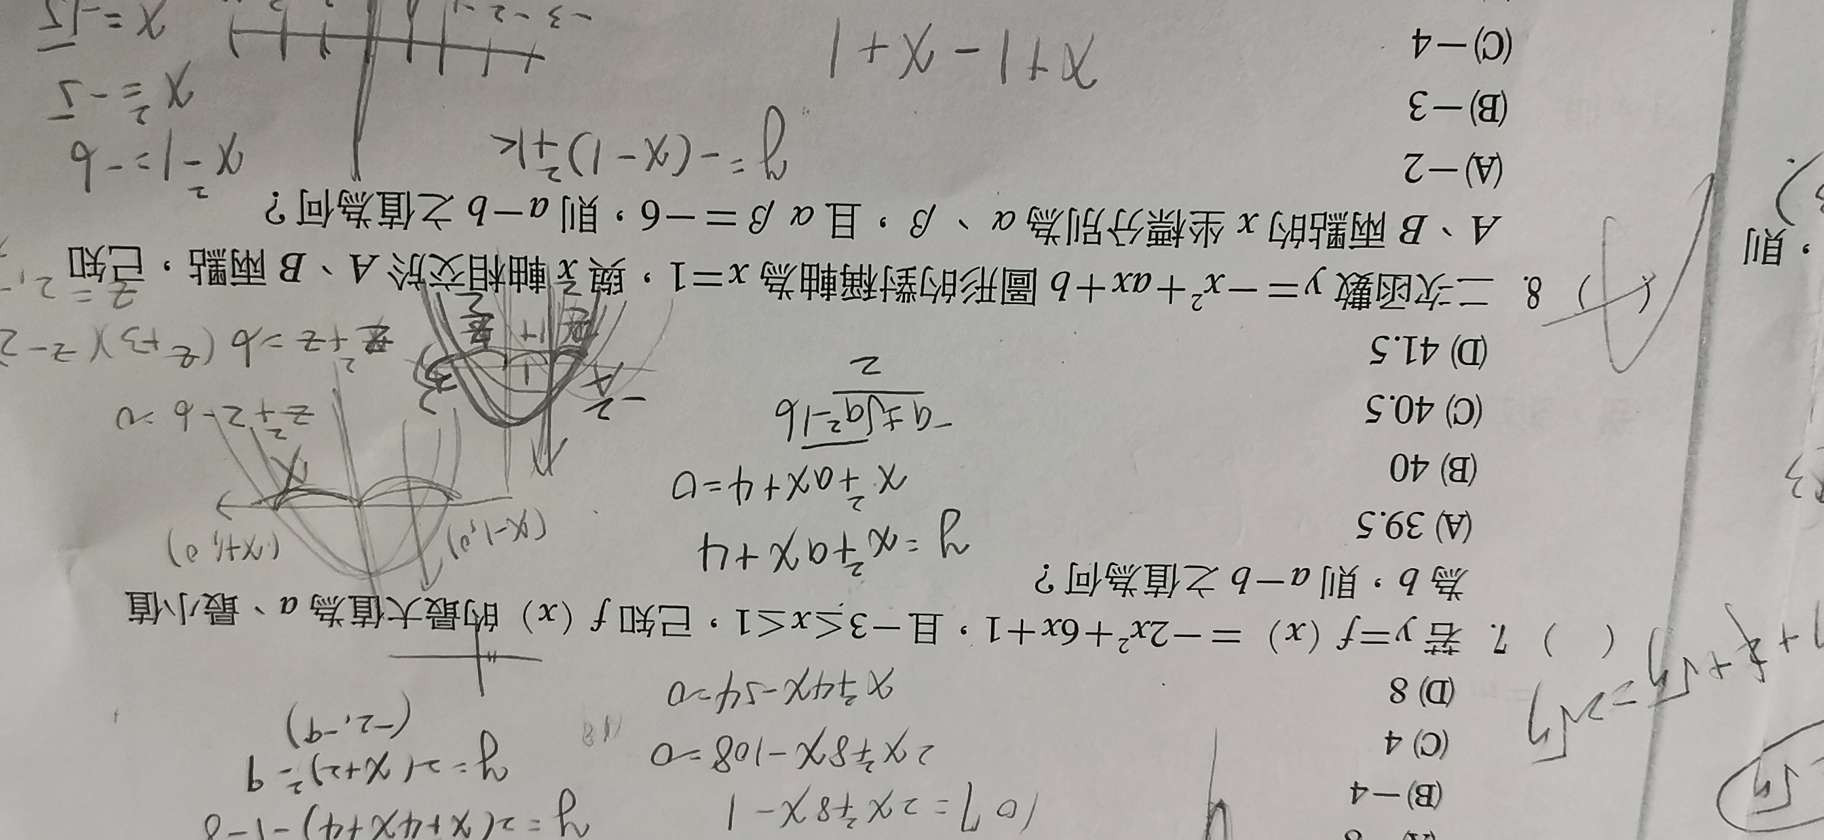 (B) −4
(C) 4
(D) 8
107=2x²+8x-1
2x²+8x-108=0
x²+4x-54=0
y=2(x+2)²-9
(-2,-9)
( ) 7. 若 y=f(x)=−2x²+6x+1，且−3≤x≤1，已知 f(x)的最大值為 a、最小值
為 b，則 a−b 之值為何？
(A) 39.5
(B) 40
(C) 40.5
(D) 41.5
y=x²+ax+4
x²+ax+4=0
-a±√a²-16
2
(x-1,0)
(x+1,0)
z²+z-6=0
z²+z=6 (z+3)(z-2
z=2,-
-2
A
3
( ) 8. 二次函數 y=−x²+ax+b 圖形的對稱軸為 x=1，與 x 軸相交於 A、B 兩點，已知
A、B 兩點的 x 坐標分別為 α、β，且 αβ=−6，則 a−b 之值為何？
(A) −2
(B) −3
(C) −4
y=-(x-1)²+k
x+1-x+1
x²-1=-6
x²=-5
x=-√5
-3 -2 -1
，則